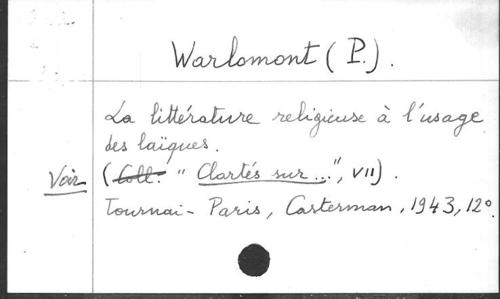 Warlomont (P.).
La littérature religieuse à l'usage
des laïques.
Voir (Coll. "Clartés sur...", VII).
Tournai - Paris, Casterman, 1943, 12°.